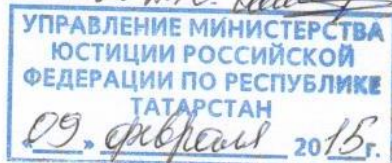 УПРАВЛЕНИЕ МИНИСТЕРСТВА
ЮСТИЦИИ РОССИЙСКОЙ
ФЕДЕРАЦИИ ПО РЕСПУБЛИКЕ
ТАТАРСТАН
«09» февраля 2015г.